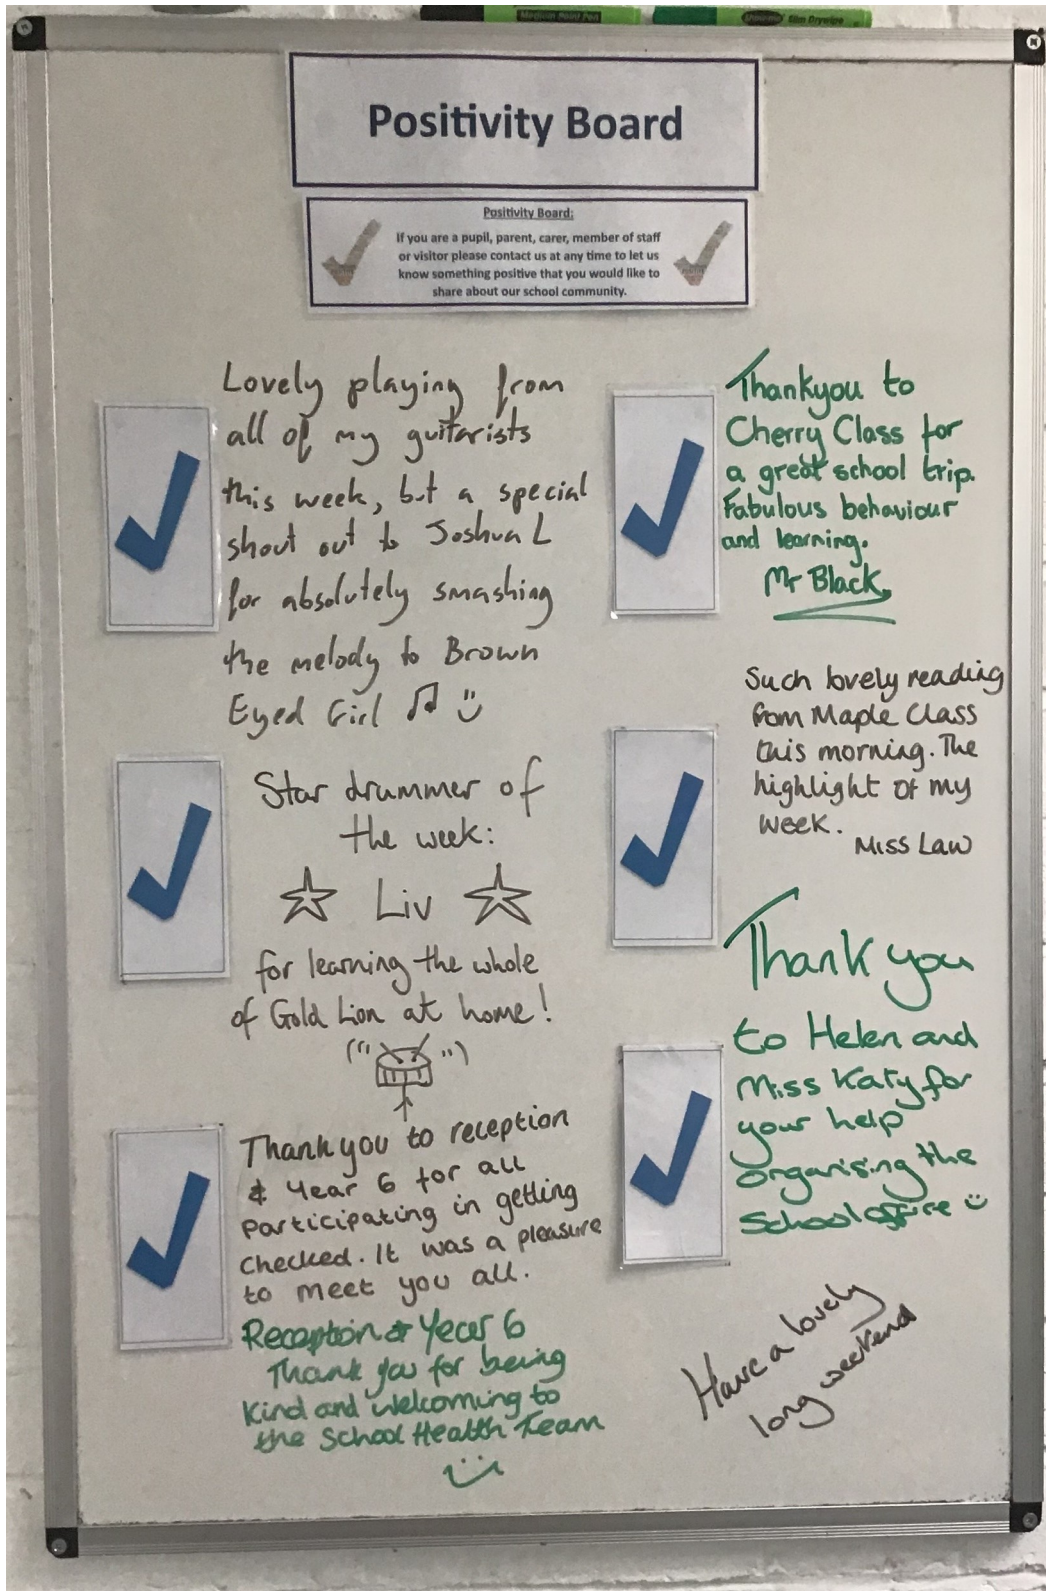 Medium Point Pen
Slim Drywipe
Positivity Board
Positivity Board:
If you are a pupil, parent, carer, member of staff
or visitor please contact us at any time to let us
know something positive that you would like to
share about our school community.
Lovely playing from
all of my guitarists
this week, but a special
shout out to Joshua L
for absolutely smashing
the melody to Brown
Eyed Girl
Star drummer of
the week:
Liv
for learning the whole
of Gold Lion at home!
Thank you to reception
& Year 6 for all
participating in getting
checked. It was a pleasure
to meet you all.
Reception & Year 6
Thank you for being
kind and welcoming to
the School Health Team
Thankyou to
Cherry Class for
a great school trip.
Fabulous behaviour
and learning.
Mr Black
Such lovely reading
from Maple Class
this morning. The
highlight of my
week.
Miss Law
Thank you
to Helen and
Miss Katy for
your help
organising the
School office
Have a lovely
long weekend